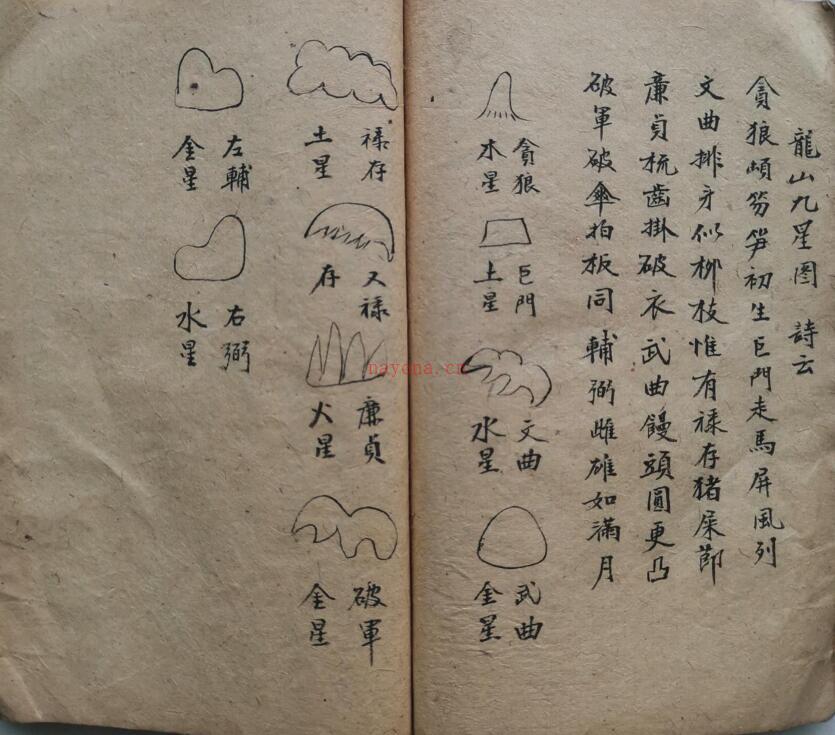 龍山九星圖 詩云
貪狼頓笏笋初生巨門走馬屏風列
文曲排牙似柳枝惟有祿存猪屎節
廉貞梳齒掛破衣武曲饅頭圓更凸
破軍破傘拍板同輔弼雌雄如滿月
貪狼
水星
巨門
土星
文曲
水星
武曲
金星
祿存
土星
又祿
存
廉貞
火星
破軍
金星
左輔
金星
右弼
水星
nayona.cn